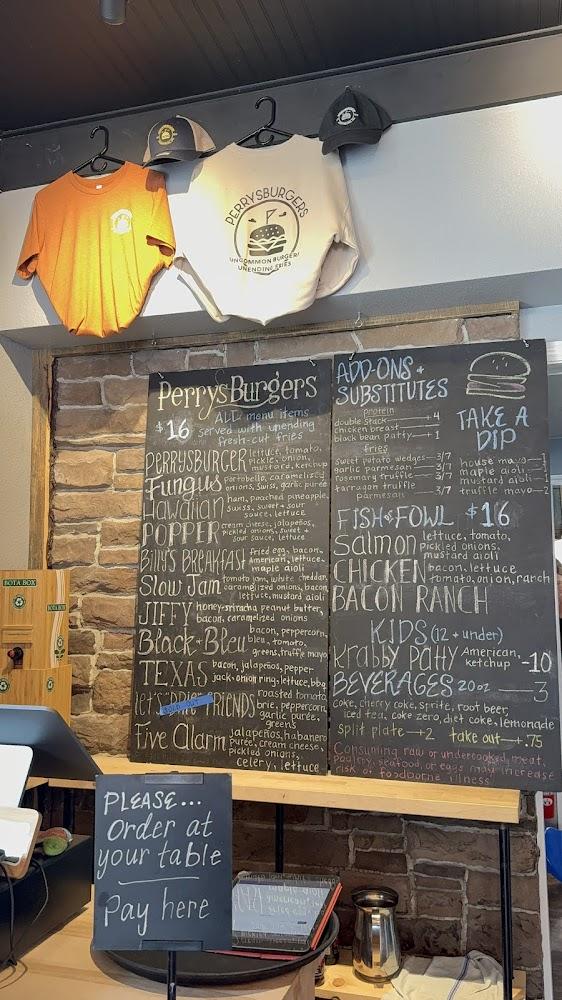 PERRYSBURGERS
UNCOMMON BURGERS
UNENDING FRIES
PerrysBurgers
$16 ALL menu items
served with unending
fresh-cut fries
PERRYSBURGER lettuce, tomato,
pickle, onion,
mustard, ketchup
Fungus Portobello, caramelized
onions, Swiss, garlic purée
Hawaiian ham, peached pineapple,
Swiss, sweet + sour
sauce, lettuce
POPPER cream cheese, jalapeños,
pickled onions, sweet +
sour sauce, lettuce
Billy's Breakfast fried egg, bacon,
American, lettuce,
maple aioli
Slow Jam tomato jam, white cheddar,
caramelized onions, bacon,
lettuce, mustard aioli
JIFFY honey-sriracha peanut butter,
bacon, caramelized onions
Black + Bleu bacon, peppercorn,
bleu, tomato,
greens, truffle mayo
TEXAS bacon, jalapeños, pepper-
jack, onion ring, lettuce, bbq
let's BRIE FRIENDS roasted tomato,
brie, peppercorn,
garlic purée,
greens
SOLD OUT
Five Alarm jalapeño, habanero
purée, cream cheese,
pickled onions,
celery, lettuce
ADD-ONS +
SUBSTITUTES
protein
double stack +4
chicken breast
black bean patty 1
fries
sweet potato wedges 3/7
garlic parmesan 3/7
rosemary truffle 3/7
tarragon truffle 3/7
parmesan
TAKE A
DIP
house mayo 1
maple aioli
mustard aioli
truffle mayo 2
FISH + FOWL $16
Salmon lettuce, tomato,
pickled onions,
mustard aioli
CHICKEN bacon, lettuce
BACON RANCH tomato, onion, ranch
KIDS (12 + under)
Krabby Patty American, ketchup -10
BEVERAGES 20oz 3
coke, cherry coke, sprite, root beer,
iced tea, coke zero, diet coke, lemonade
split plate → 2 take out → +.75
Consuming raw or undercooked meat,
poultry, seafood, or eggs may increase
risk of foodborne illness
BOTA BOX
BOTA BOX
PLEASE...
Order at
your table
Pay here